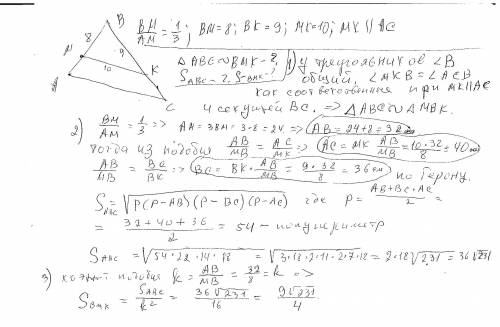 B
8
9
M
10
K
C
BM/AM = 1/3; BM=8; BK=9; MK=10; MK || AC
△ABC ∽ BMK - ?
S_ABC - ?, S_BMK - ?
1) у треугольников ∠B
общий, ∠MKB = ∠ACB
как соответственные при MK||AC
и секущей BC. => △ABC ∽ △MBK.
2) BM/AM = 1/3 => AM = 3BM = 3·8 = 24 => AB = 24+8 = 32 см
тогда из подобия AB/MB = AC/MK => AC = MK AB/MB = 10·32/8 = 40 см
AB/MB = BC/BK => BC = BK · AB/MB = 9·32/8 = 36 см по Герону.
S_ABC = √P(P-AB)(P-BC)(P-AC) где P = AB+BC+AC/2 =
= 32+40+36/2 = 54 - полупериметр
S_ABC = √54·22·14·18 = √3·18·2·11·2·7·18 = 2·18√231 = 36√231
3) коэфиц подобия k = AB/MB = 32/8 = k =>
S_BMK = S_ABC/k² = 36√231/16 = 9√231/4